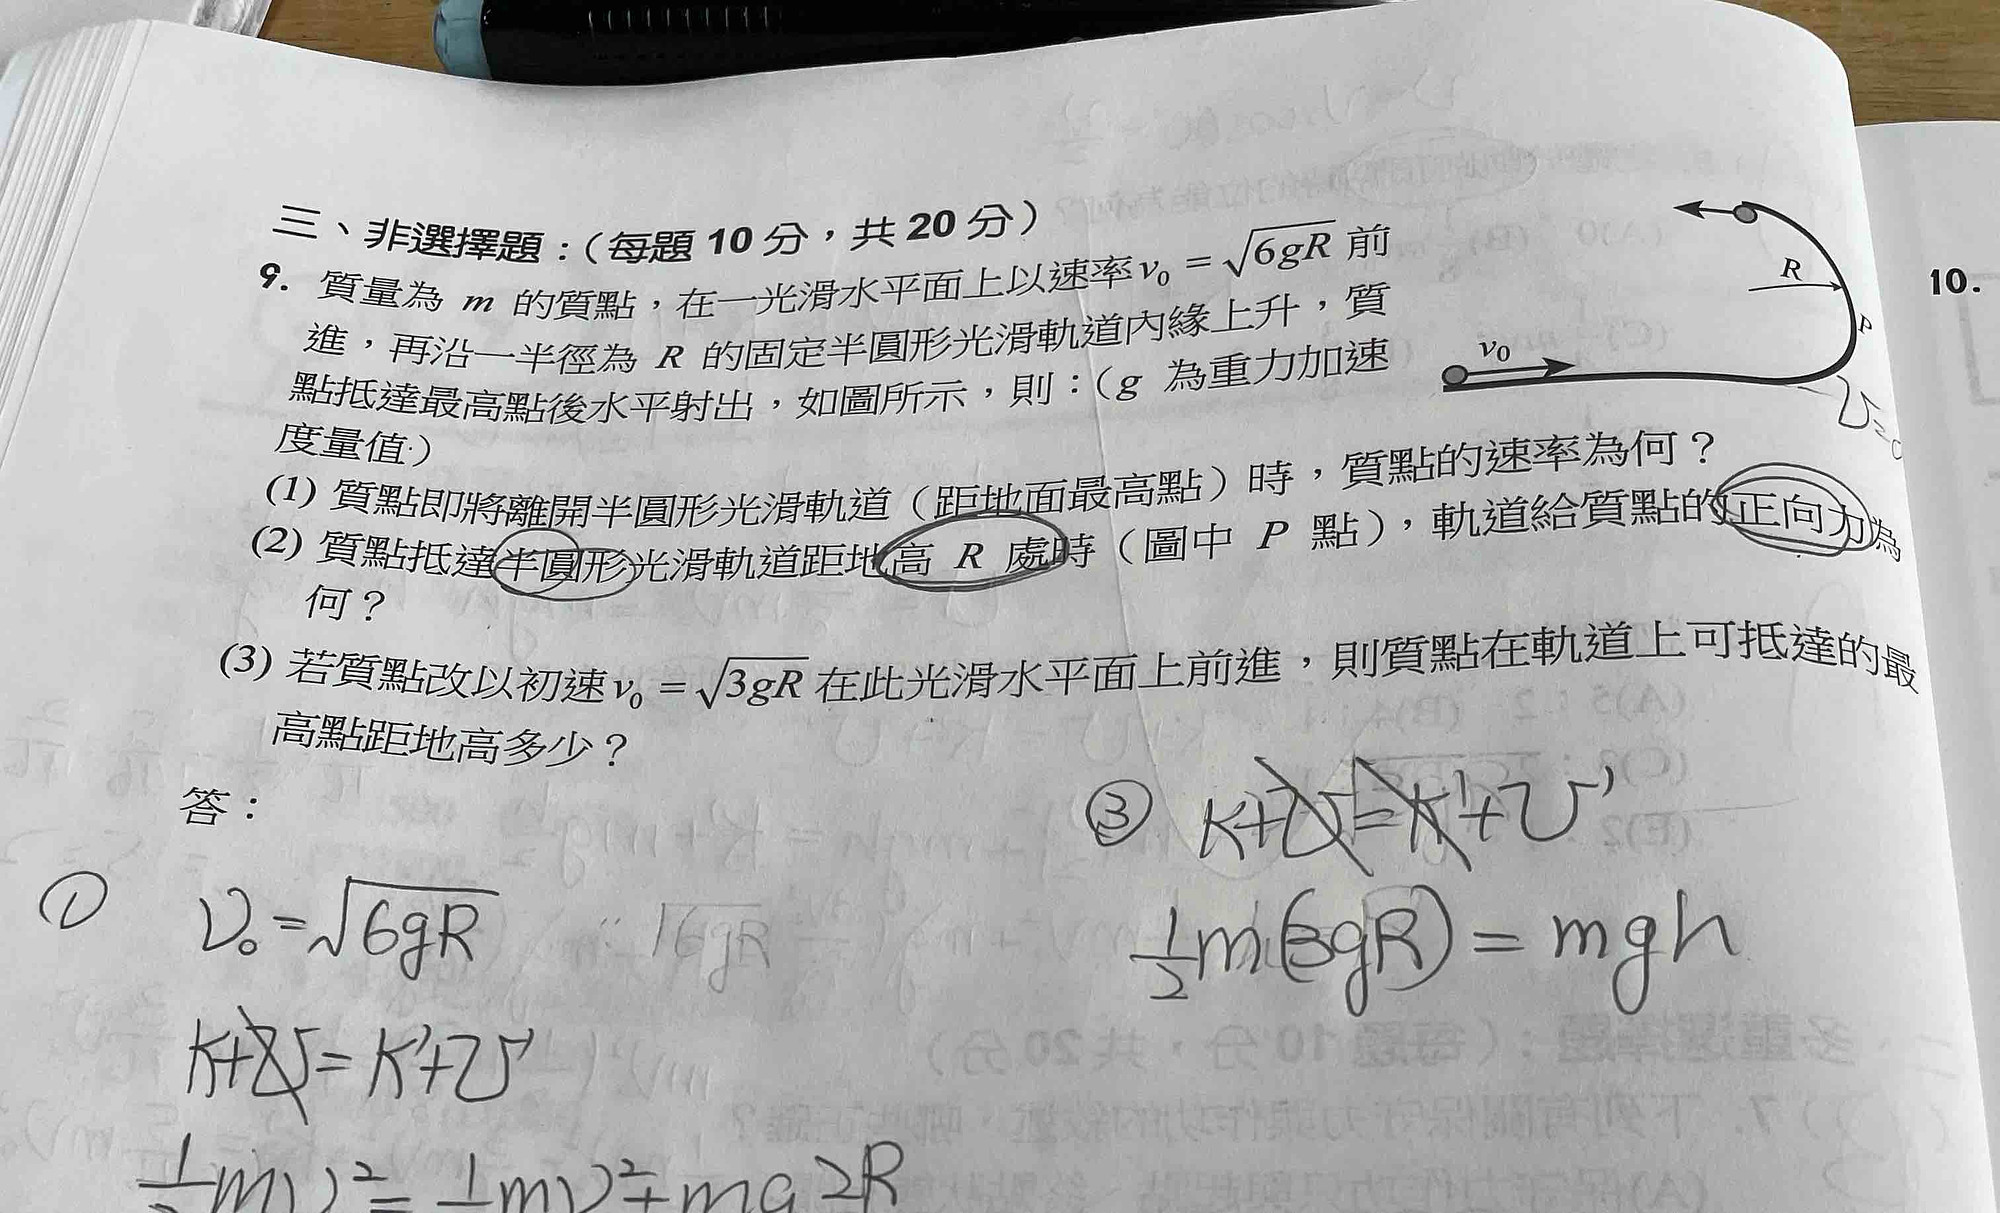 三、非選擇題：（每題 10 分，共 20 分）
9. 質量為 m 的質點，在一光滑水平面上以速率 v₀ = √6gR 前
進，再沿一半徑為 R 的固定半圓形光滑軌道內緣上升，質
點抵達最高點後水平射出，如圖所示，則：（g 為重力加速
度量值）
R
P
v₀
10.
(1) 質點即將離開半圓形光滑軌道（距地面最高點）時，質點的速率為何？
(2) 質點抵達半圓形光滑軌道距地高 R 處時（圖中 P 點），軌道給質點的正向力為
何？
(3) 若質點改以初速 v₀ = √3gR 在此光滑水平面上前進，則質點在軌道上可抵達的最
高點距地高多少？
答：
① V₀ = √6gR
K+U = K'+U'
½mV² = ½mV² + mg2R
③ K+U = K'+U'
½m(3gR) = mgh
U=0